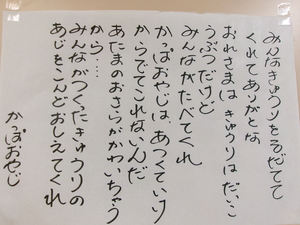 みんなきゅうりをそだてて
くれてありがとな
おれさまは きゅうりはだいこ
うぶつだけど
みんながたべてくれ
かっぱおやじは、あつくていけ
からでてこれないんだ
あたまのおさらがかわいちゃう
から・・・・
みんながつくったきゅうりの
あじをこんどおしえてくれ
かっぱおやじ